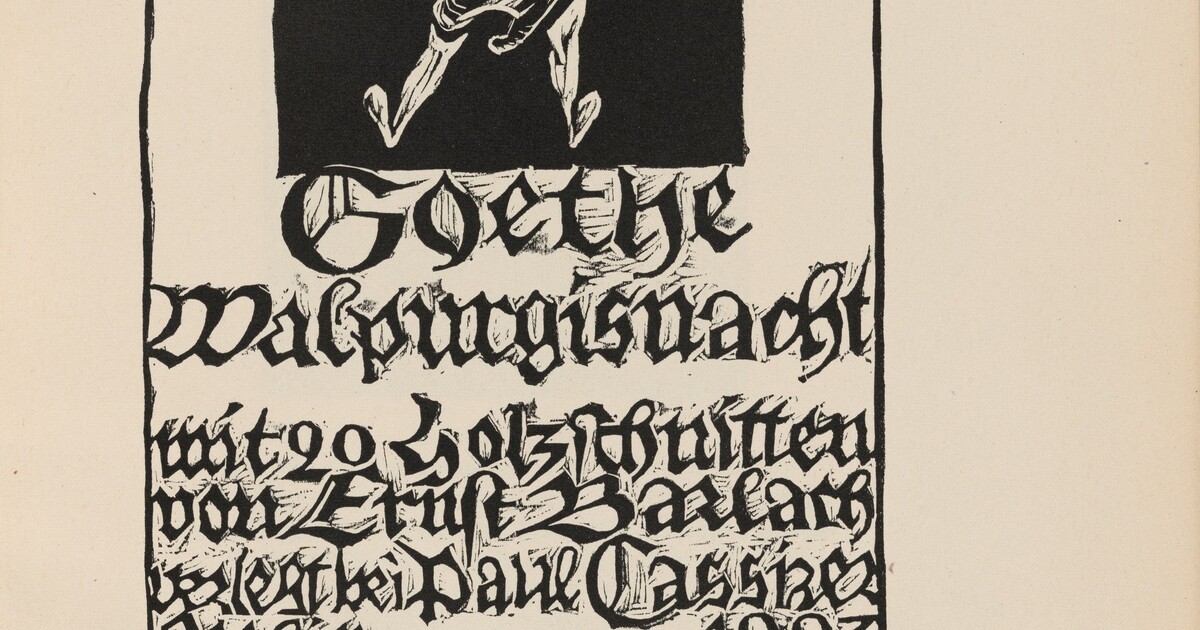 Goethe
Walpurgisnacht
mit 20 Holzschnitten
von Ernst Barlach
verlegt bei Paul Cassirer